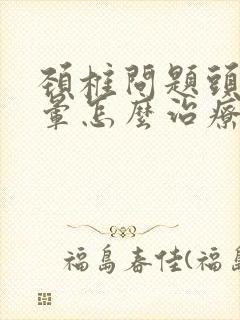 頚柱問題頭
暈怎麼治療
福島春佳(福島